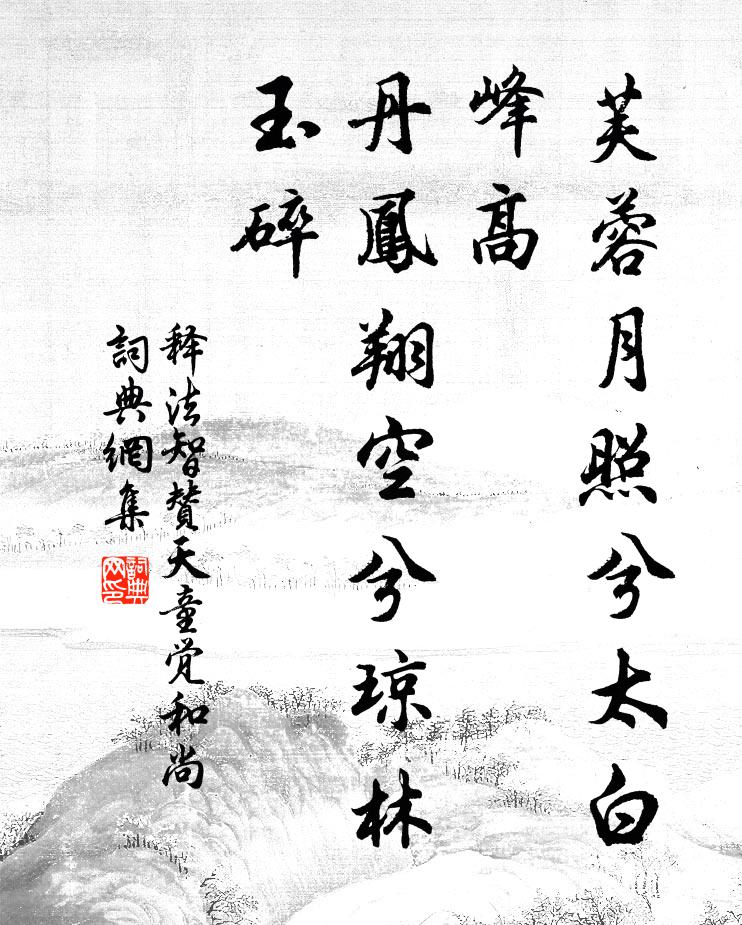 芙蓉月照兮太白
峰高
丹鳳翔空兮琼林
玉碎
释法智赞天童觉和尚
詞典網集
詞典
网印